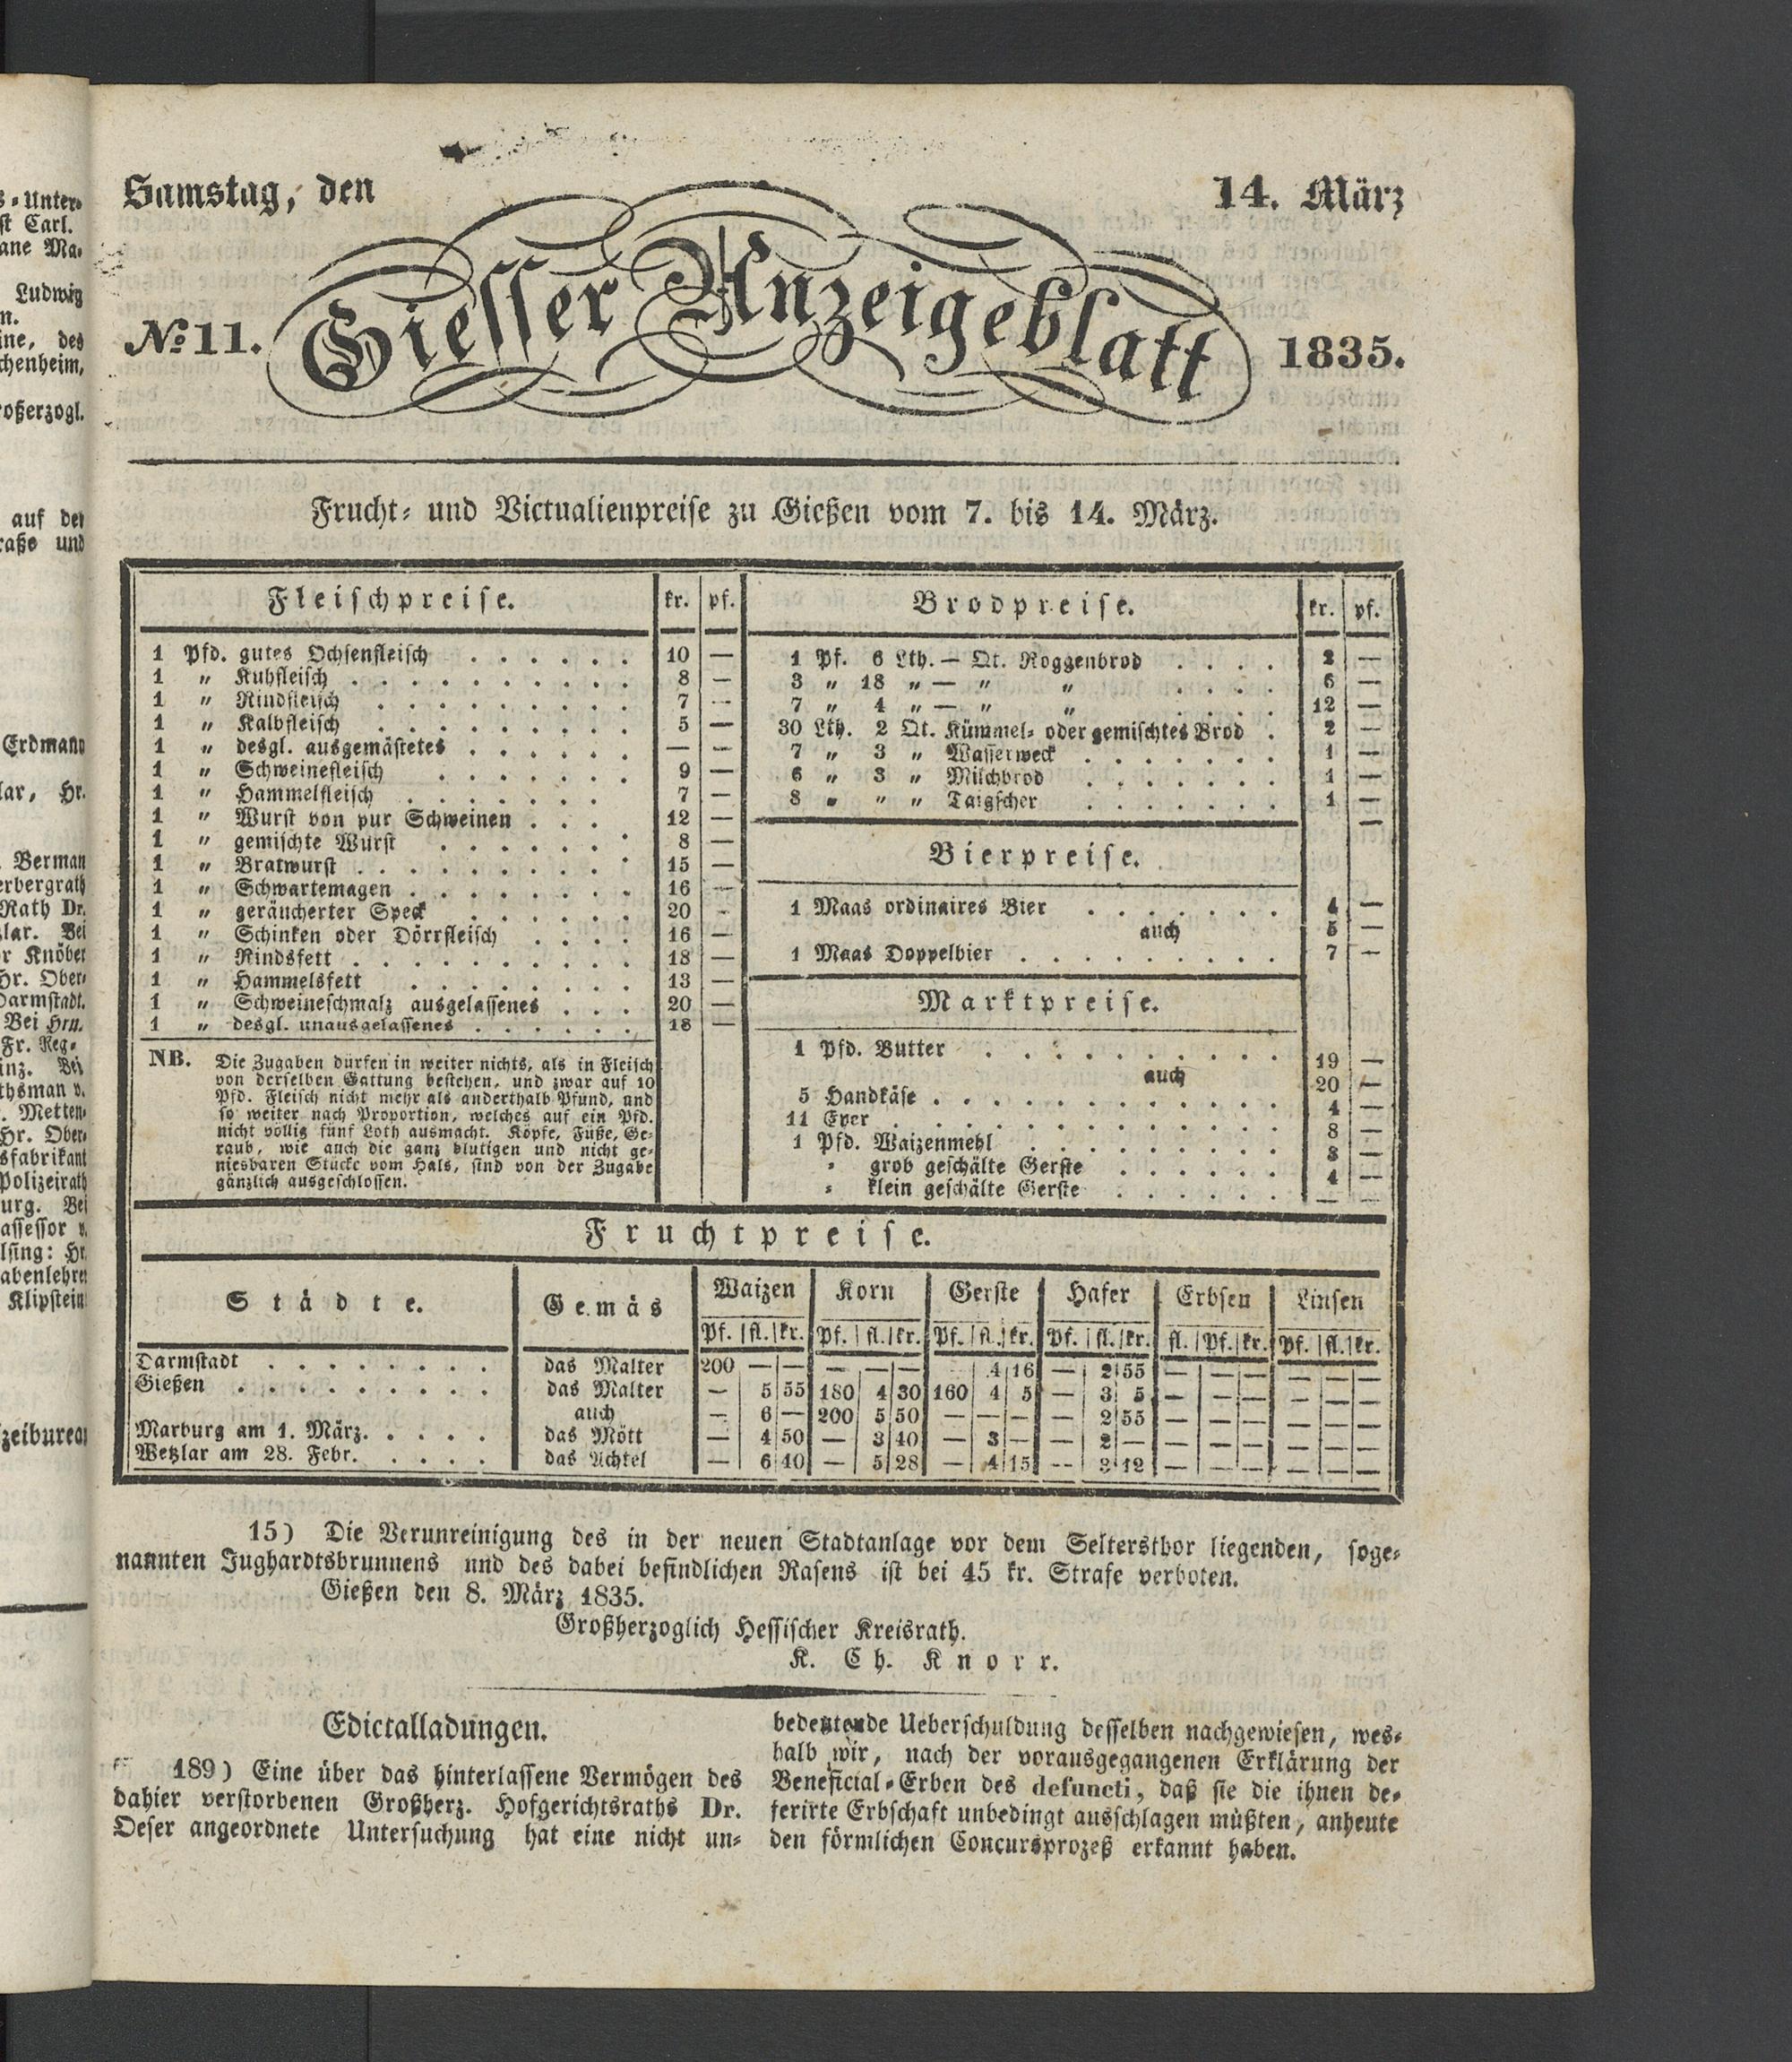 s-Unter-
st Carl.
ane Ma-
Ludwig
n.
ine, des
chenheim,
roßerzogl.
auf der
raße und
Erdmann
lar, Hr.
Berman
erbergrath
Rath Dr.
zlar. Bei
r Knöber
Hr. Ober-
Darmstadt.
Bei Hrn.
Fr. Reg-
inz. Bei
thsman v.
. Metten-
Hr. Ober-
sfabrikant
Polizeirath
urg. Bei
assessor v.
lsing: Hr.
abenlehrer
Klipstein
zeibureau
Samstag, den 14. März
No 11. Giesser Anzeigeblatt 1835.
Frucht- und Victualienpreise zu Gießen vom 7. bis 14. März.
Fleischpreise. kr. pf.
1 Pfd. gutes Ochsenfleisch . . . . . . 10 —
1 „ Kuhfleisch . . . . . . . . . . 8 —
1 „ Rindfleisch . . . . . . . . . 7 —
1 „ Kalbfleisch . . . . . . . . . 5 —
1 „ desgl. ausgemästetes . . . . . . — —
1 „ Schweinefleisch . . . . . . . 9 —
1 „ Hammelfleisch . . . . . . . 7 —
1 „ Wurst von pur Schweinen . . . 12 —
1 „ gemischte Wurst . . . . . . . 8 —
1 „ Bratwurst . . . . . . . . . 15 —
1 „ Schwartemagen . . . . . . . . 16 —
1 „ geräucherter Speck . . . . . . 20 -
1 „ Schinken oder Dörrfleisch . . . . 16 —
1 „ Rindsfett . . . . . . . . . . 18 —
1 „ Hammelsfett . . . . . . . . 13 —
1 „ Schweineschmalz ausgelassenes . . . 20 —
1 „ desgl. unausgelassenes . . . . . . 18 —
NB. Die Zugaben dürfen in weiter nichts, als in Fleisch
von derselben Gattung bestehen, und zwar auf 10
Pfd. Fleisch nicht mehr als anderthalb Pfund, und
so weiter nach Proportion, welches auf ein Pfd.
nicht völlig fünf Loth ausmacht. Köpfe, Füße, Ge-
raub, wie auch die ganz blutigen und nicht ge-
niesbaren Stücke vom Hals, sind von der Zugabe
gänzlich ausgeschlossen.
Brodpreise. kr. pf.
1 Pf. 6 Lth. — Qt. Roggenbrod . . . . 2 —
3 „ 18 „ — „ „ . . . . 6 —
7 „ 4 „ — „ „ . . . . 12 —
30 Lth. 2 Qt. Kümmel- oder gemischtes Brod . 2 —
7 „ 3 „ Wasserweck . . . . . . . 1 —
6 „ 3 „ Milchbrod . . . . . . . 1 —
8 „ „ „ Taigscher . . . . . . . 1 —
Bierpreise.
1 Maas ordinaires Bier . . . . . . . 4 —
auch 5 —
1 Maas Doppelbier . . . . . . . . . 7 —
Marktpreise.
1 Pfd. Butter . . . . . . . . . . 19 —
auch 20 —
5 Handkäse . . . . . . . . . . . . 4 —
11 Eyer . . . . . . . . . . . . . 8 —
1 Pfd. Waizenmehl . . . . . . . . . 3 —
- grob geschälte Gerste . . . . . . 4 —
- klein geschälte Gerste . . . . . . — —
Fruchtpreise.
Städte. Gemäs Waizen Korn Gerste Hafer Erbsen Linsen
Pf. fl. kr. Pf. fl. kr. Pf. fl. kr. Pf. fl. kr. fl. Pf. kr. Pf. fl. kr.
Darmstadt . . . . . . . . das Malter 200 — — — — — 4 16 — 2 55 — — — — — —
Gießen . . . . . . . . . das Malter — 5 55 180 4 30 160 4 5 — 3 5 — — — — — —
auch — 6 — 200 5 50 — — — — 2 55 — — — — — —
Marburg am 1. März. . . . . das Mött — 4 50 — 3 40 — 3 — — 2 — — — — — — —
Wetzlar am 28. Febr. . . . . das Achtel — 6 40 — 5 28 — 4 15 — 3 12 — — — — — —
15) Die Verunreinigung des in der neuen Stadtanlage vor dem Seltersthor liegenden, soge-
nannten Jughardtsbrunnens und des dabei befindlichen Rasens ist bei 45 kr. Strafe verboten.
Gießen den 8. März 1835.
Großherzoglich Hessischer Kreisrath.
K. Ch. Knorr.
Edictalladungen.
189) Eine über das hinterlassene Vermögen des
dahier verstorbenen Großherz. Hofgerichtsraths Dr.
Oeser angeordnete Untersuchung hat eine nicht un-
bedeutende Ueberschuldung desselben nachgewiesen, wes-
halb wir, nach der vorausgegangenen Erklärung der
Beneficial-Erben des defuncti, daß sie die ihnen de-
ferirte Erbschaft unbedingt ausschlagen müßten, anheute
den förmlichen Concursprozeß erkannt haben.